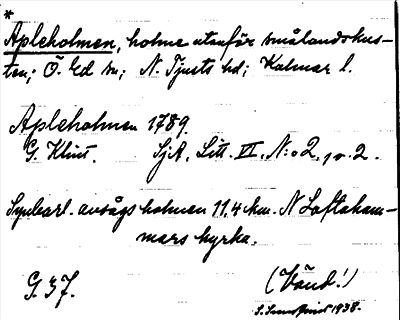 *
Apleholmen, holme utanför smålandskus-
ten; Ö. Ed sn; N. Tjusts hd; Kalmar l.
Apleholmen 1789.
G. Klint. SjA. Litt. VI. N:o 2, v. 2.
Synbarl. avsågs holmen 11.4 km. N Loftaham-
mars kyrka.
G. 37. (Vänd!)
1938.